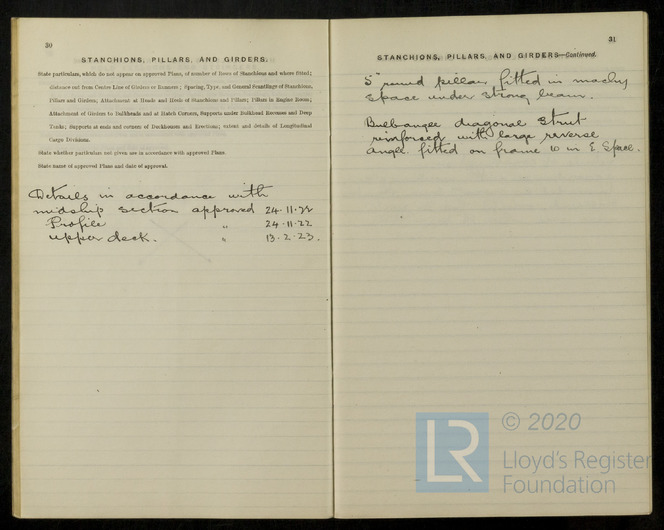 30
STANCHIONS, PILLARS, AND GIRDERS.
State particulars, which do not appear on approved Plans, of number of Rows of Stanchions and where fitted;
distance out from Centre Line of Girders or Runners; Spacing, Type, and General Scantlings of Stanchions,
Pillars and Girders; Attachment at Heads and Heels of Stanchions and Pillars; Pillars in Engine Room;
Attachment of Girders to Bulkheads and at Hatch Corners, Supports under Bulkhead Recesses and Deep
Tanks; Supports at ends and corners of Deckhouses and Erections; extent and details of Longitudinal
Cargo Divisions.
State whether particulars not given are in accordance with approved Plans.
State name of approved Plans and date of approval.
Details in accordance with
midship section approved 24·11·22
Profile " 24·11·22
upper deck. " 13·2·23.
31
STANCHIONS, PILLARS, AND GIRDERS—Continued.
5" round pillar fitted in machy
space under strong beam.
Bulb angle diagonal strut
reinforced with large reverse
angle fitted on frame 10 in E. Space.
LR
© 2020
Lloyd's Register
Foundation